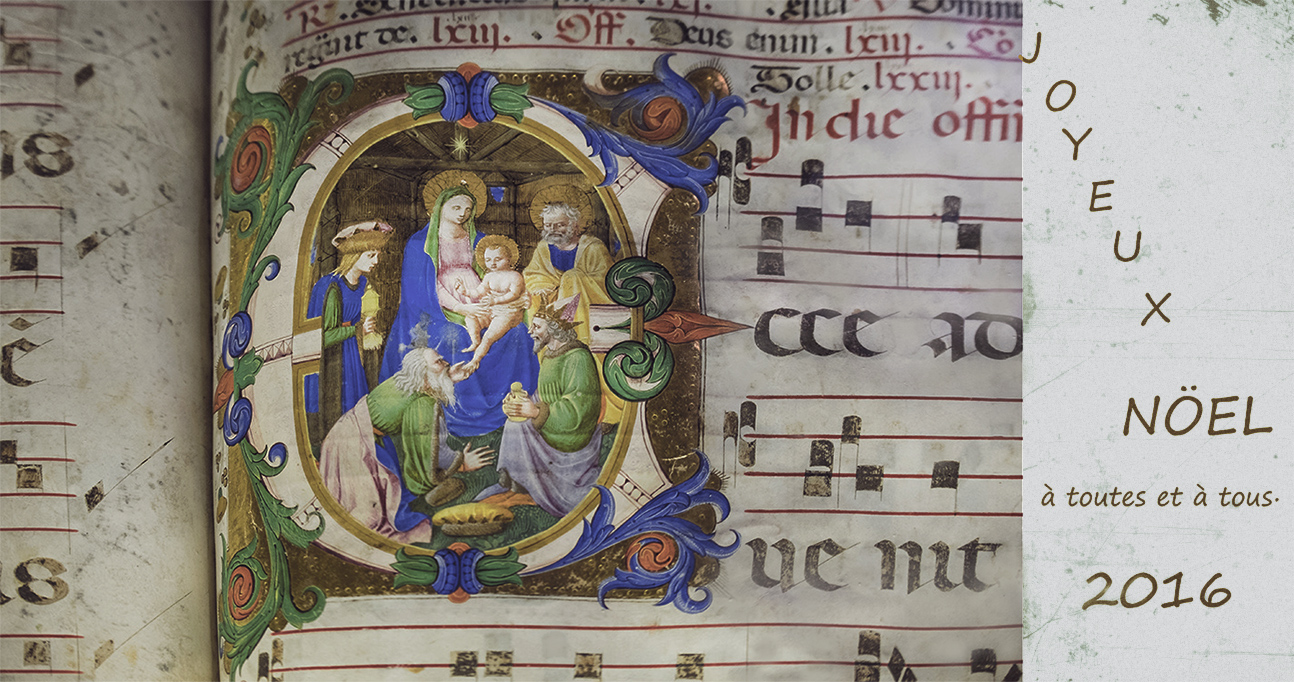 regũt te. lxiij. Off. Deus enim. lxiij. Cō
Tolle. lxxiij.
In die offi
E cce ad
ve nit
18
J O Y E U X
NÖEL
à toutes et à tous.
2016